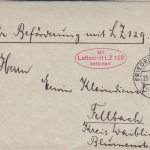 Für Beförderung mit LZ 129.
Mit
Luftschiff LZ 129
befördert
Herrn
Erwin Kleindienst
Fellbach
Kreis Waiblin
Blumenst